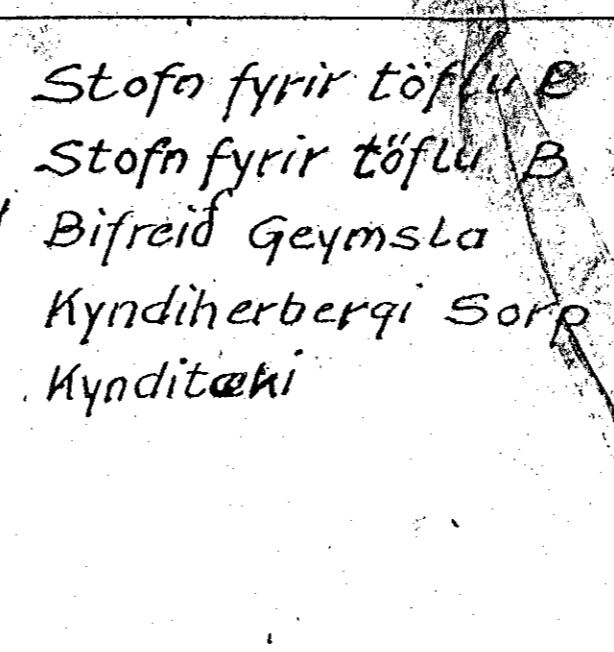 Stofn fyrir töflu B
Stofn fyrir töflu B
Bifreið Geymsla
Kyndiherbergi Sorp
Kynditæki